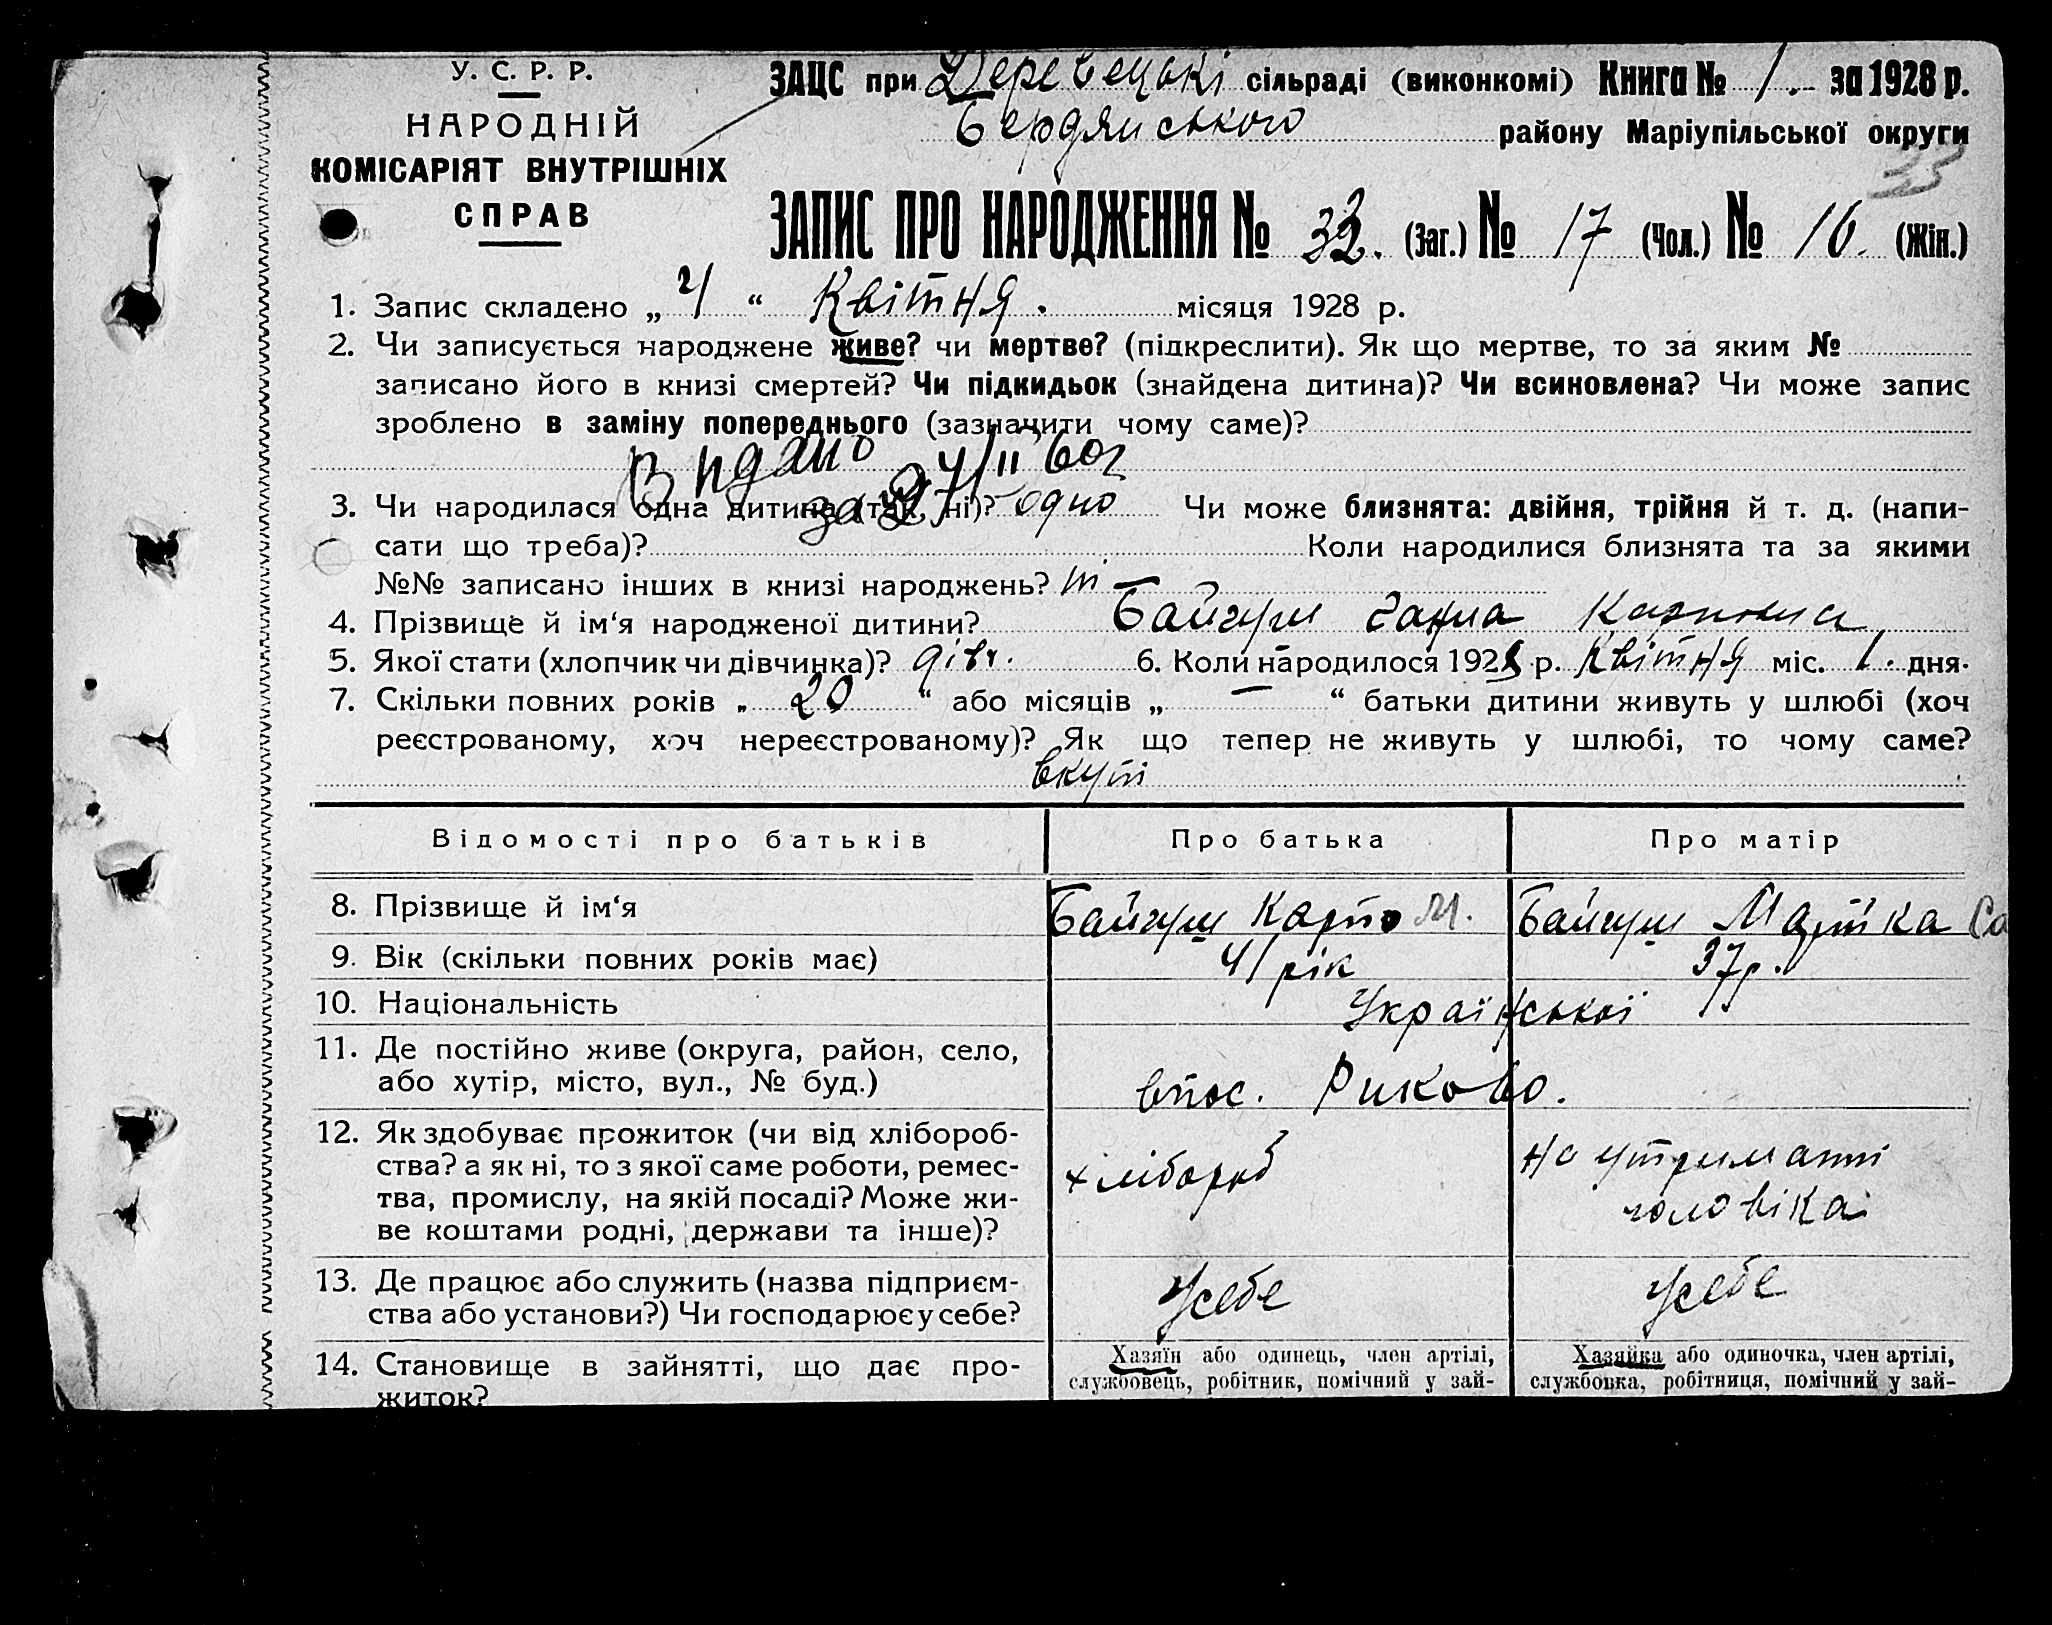 У. С. Р. Р.
НАРОДНІЙ
КОМІСАРІЯТ ВНУТРІШНІХ
СПРАВ
ЗАЦС при Деревецькі сільраді (виконкомі) Книга № 1. за 1928 р.
Бердянського району Маріупільської округи
33
ЗАПИС ПРО НАРОДЖЕННЯ № 33. (Заг.) № 17 (Чол.) № 16. (Жін.)
1. Запис складено „ 4 “ Квітня. місяця 1928 р.
2. Чи записується народжене живе? чи мертве? (підкреслити). Як що мертве, то за яким №
записано його в книзі смертей? Чи підкидьок (знайдена дитина)? Чи всиновлена? Чи може запис
зроблено в заміну попереднього (зазначити чому саме)?
3. Чи народилася одна дитина (так, ні)? одно Чи може близнята: двійня, трійня й т. д. (напи-
сати що треба)? Коли народилися близнята та за якими
№№ записано інших в книзі народжень? ні
4. Прізвище й ім‘я народженої дитини? Байгуш Ганна Карповна
5. Якої стати (хлопчик чи дівчинка)? дівч. 6. Коли народилося 1928 р. Квітня міс. 1. дня.
7. Скільки повних років „ 20 “ або місяців „ — “ батьки дитини живуть у шлюбі (хоч
реєстрованому, хоч нереєстрованому)? Як що тепер не живуть у шлюбі, то чому саме?
вкупі
Відомості про батьків Про батька Про матір
8. Прізвище й ім‘я Байгуш Карпо М. Байгуш Марфка
9. Вік (скільки повних років має) 41 рік 37 р.
10. Національність Української
11. Де постійно живе (округа, район, село,
або хутір, місто, вул., № буд.) впос. Риково.
12. Як здобуває прожиток (чи від хлібороб-
ства? а як ні, то з якої саме роботи, ремес-
тва, промислу, на якій посаді? Може жи-
ве коштами родні, держави та інше)?
хлібороб
на утриманні
чоловіка
13. Де працює або служить (назва підприєм-
ства або установи?) Чи господарює у себе?
Усебе Усебе
14. Становище в зайнятті, що дає про-
житок?
Хазяїн або одинець, член артілі,
службовець, робітник, помічний у зай-
Хазяйка або одиночка, член артілі,
службовка, робітниця, помічний у зай-